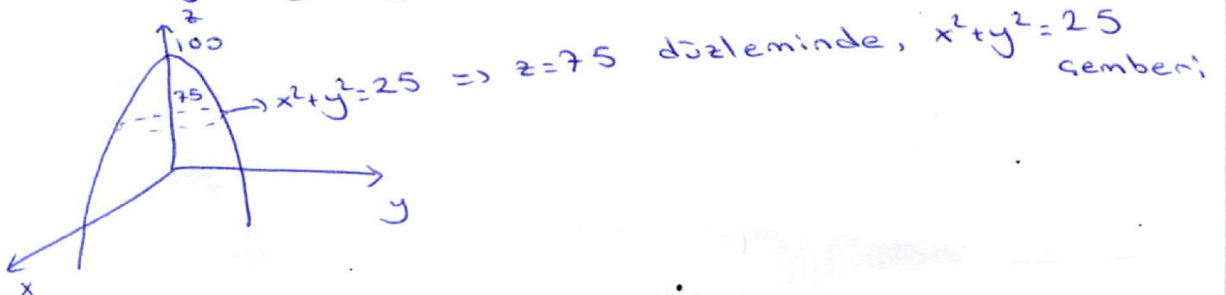 z
100
75
x²+y²=25 => z=75 düzleminde, x²+y²=25
çemberi
y
x